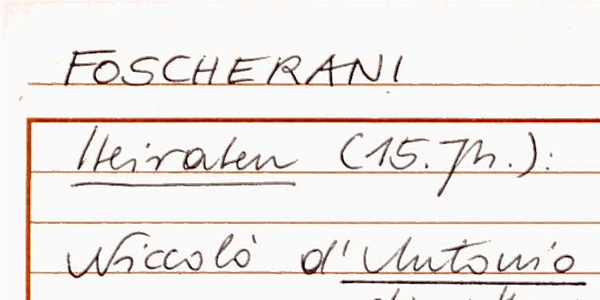 FOSCHERANI
Heiraten (15. Jh.):
Niccolò d'Antonio